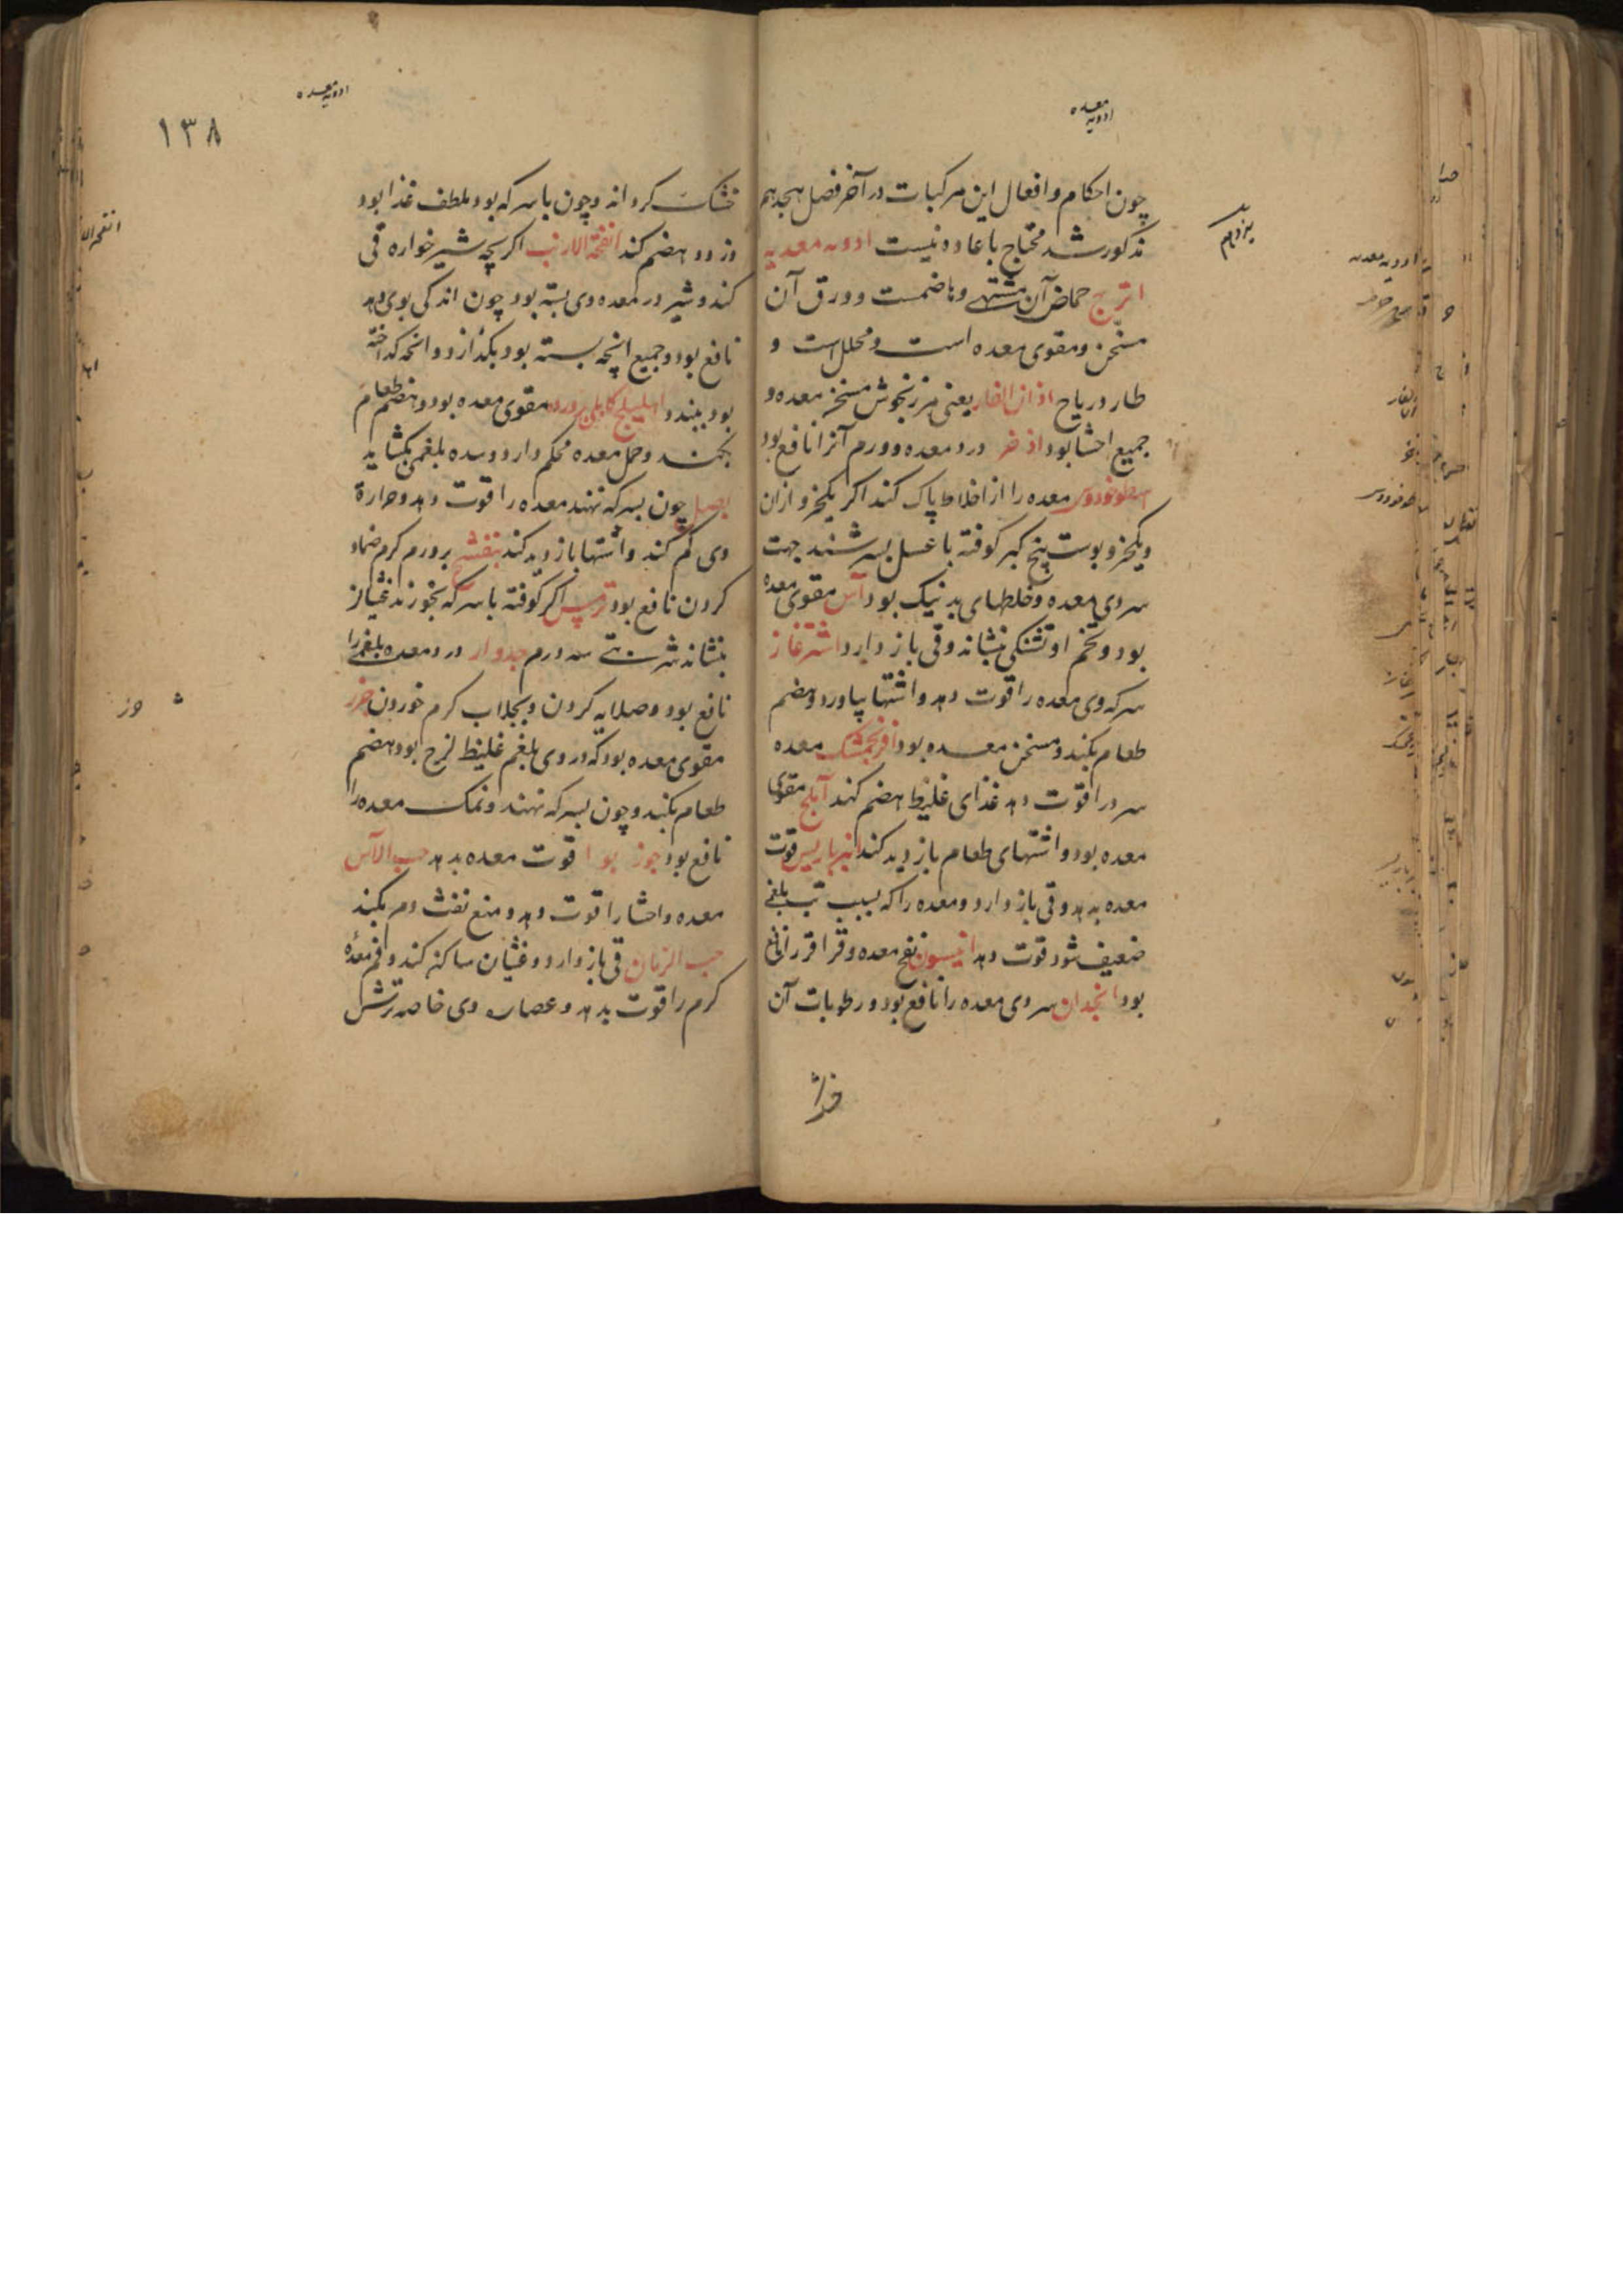 معده
ادویه
چون احکام و افعال این مرکبات در آخر فصل هجدهم
مذکور شد محتاج باعاده نیست ادویه معدیه
اترج حماض آن مشتهی و هاضمست و ورق آن
مسخن و مقوی معده است و محلل است و
طارد ریاح اذان الفار یعنی مرزنجوش مسخن معده و
جمیع احشا بود اذخر درد معده و ورم آنرا نافع بود
اسطوخودوس معده را از اخلاط پاک کند اگر یکجزو ازان
و یکجزو پوست بیخ کبر کوفته با عسل بسرشند جهت
سردی معده و خلطهای بد نیک بود آس مقوی معده
بود و تخم او تشنکی بنشاند و قی باز دارد اشترغاز
سرکه وی معده را قوت دهد و اشتها بیاورد و هضم
طعام بکند و مسخن معده بود افرنجمشک معده
سرد را قوت دهد غذای غلیظ هضم کند آملج مقوی
معده بود و اشتهای طعام بازدید کند انبرباریس قوت
معده بدهد و قی باز دارد و معده را که بسبب تب بلغمی
ضعیف شود قوت دهد انیسون نفخ معده و قراقر را نافع
بود انجدان سردی معده را نافع بود و رطوبات آن
ادویه معده
۱۳۸
خشک کرداند و چون با سرکه بود ملطف غذا بود
و زود هضم کند انفحة الارنب اکر بچه شیرخواره قی
کند و شیر در معده وی بسته بود چون اندکی بوی دهد
نافع بود و جمیع انچه بسته بود بکدازد و انچه کداخته
بود ببندد اهلیلج کابلی پرورده مقوی معده بود و هضم طعام
بکند و خمل معده محکم دارد و سده بلغمی بکشاید
بصل چون بسرکه نهند معده را قوت دهد و حرارة
وی کم کند و اشتها بازدید کند بنفشه بر ورم کرم ضماد
کردن نافع بود ترمس اکر کوفته با سرکه بخورند غثیان
بنشاند شربتی سه درم جدوار درد معده بلغمی را
نافع بود و صلایه کردن و بجلاب کرم خوردن جزر
مقوی معده بود که در وی بلغم غلیظ لزج بود هضم
طعام بکند و چون بسرکه نهند و نمک معده را
نافع بود جوز بوا قوت معده بدهد حب الآس
معده و احشا را قوت دهد و منع نفث دم بکند
حب الرمان قی باز دارد و غثیان ساکن کند و فم معده
کرم را قوت بدهد و عصاره وی خاصه ترش